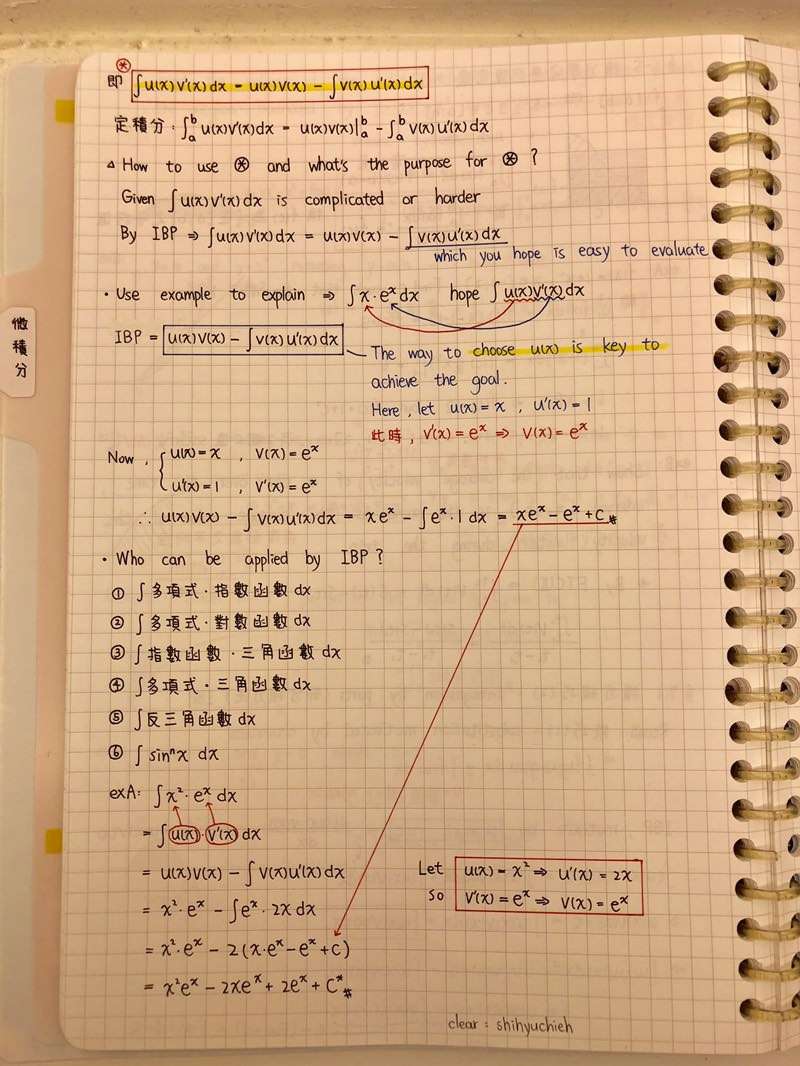 即 ⊛ ∫u(x)v'(x)dx = u(x)v(x) - ∫v(x)u'(x)dx
定積分：∫ₐᵇ u(x)v'(x)dx = u(x)v(x)|ₐᵇ - ∫ₐᵇ v(x)u'(x)dx
△ How to use ⊛ and what's the purpose for ⊛ ?
Given ∫u(x)v'(x)dx is complicated or harder
By IBP ⇒ ∫u(x)v'(x)dx = u(x)v(x) - ∫v(x)u'(x)dx
which you hope is easy to evaluate
• Use example to explain ⇒ ∫x·eˣdx hope ∫u(x)v'(x)dx
IBP = u(x)v(x) - ∫v(x)u'(x)dx
The way to choose u(x) is key to
achieve the goal.
Here, let u(x) = x , u'(x) = 1
此時, v'(x) = eˣ ⇒ v(x) = eˣ
Now, { u(x) = x , v(x) = eˣ
u'(x) = 1 , v'(x) = eˣ
∴ u(x)v(x) - ∫v(x)u'(x)dx = xeˣ - ∫eˣ·1 dx = xeˣ - eˣ + c #
• Who can be applied by IBP ?
① ∫多項式·指數函數 dx
② ∫多項式·對數函數 dx
③ ∫指數函數·三角函數 dx
④ ∫多項式·三角函數 dx
⑤ ∫反三角函數 dx
⑥ ∫sinⁿx dx
exA: ∫x²·eˣ dx
= ∫u(x)·v'(x) dx
= u(x)v(x) - ∫v(x)u'(x)dx
= x²·eˣ - ∫eˣ·2x dx
= x²·eˣ - 2(x·eˣ - eˣ + c)
= x²eˣ - 2xeˣ + 2eˣ + C* #
Let u(x) = x² ⇒ u'(x) = 2x
So v'(x) = eˣ ⇒ v(x) = eˣ
微積分
clear : shihyuchieh